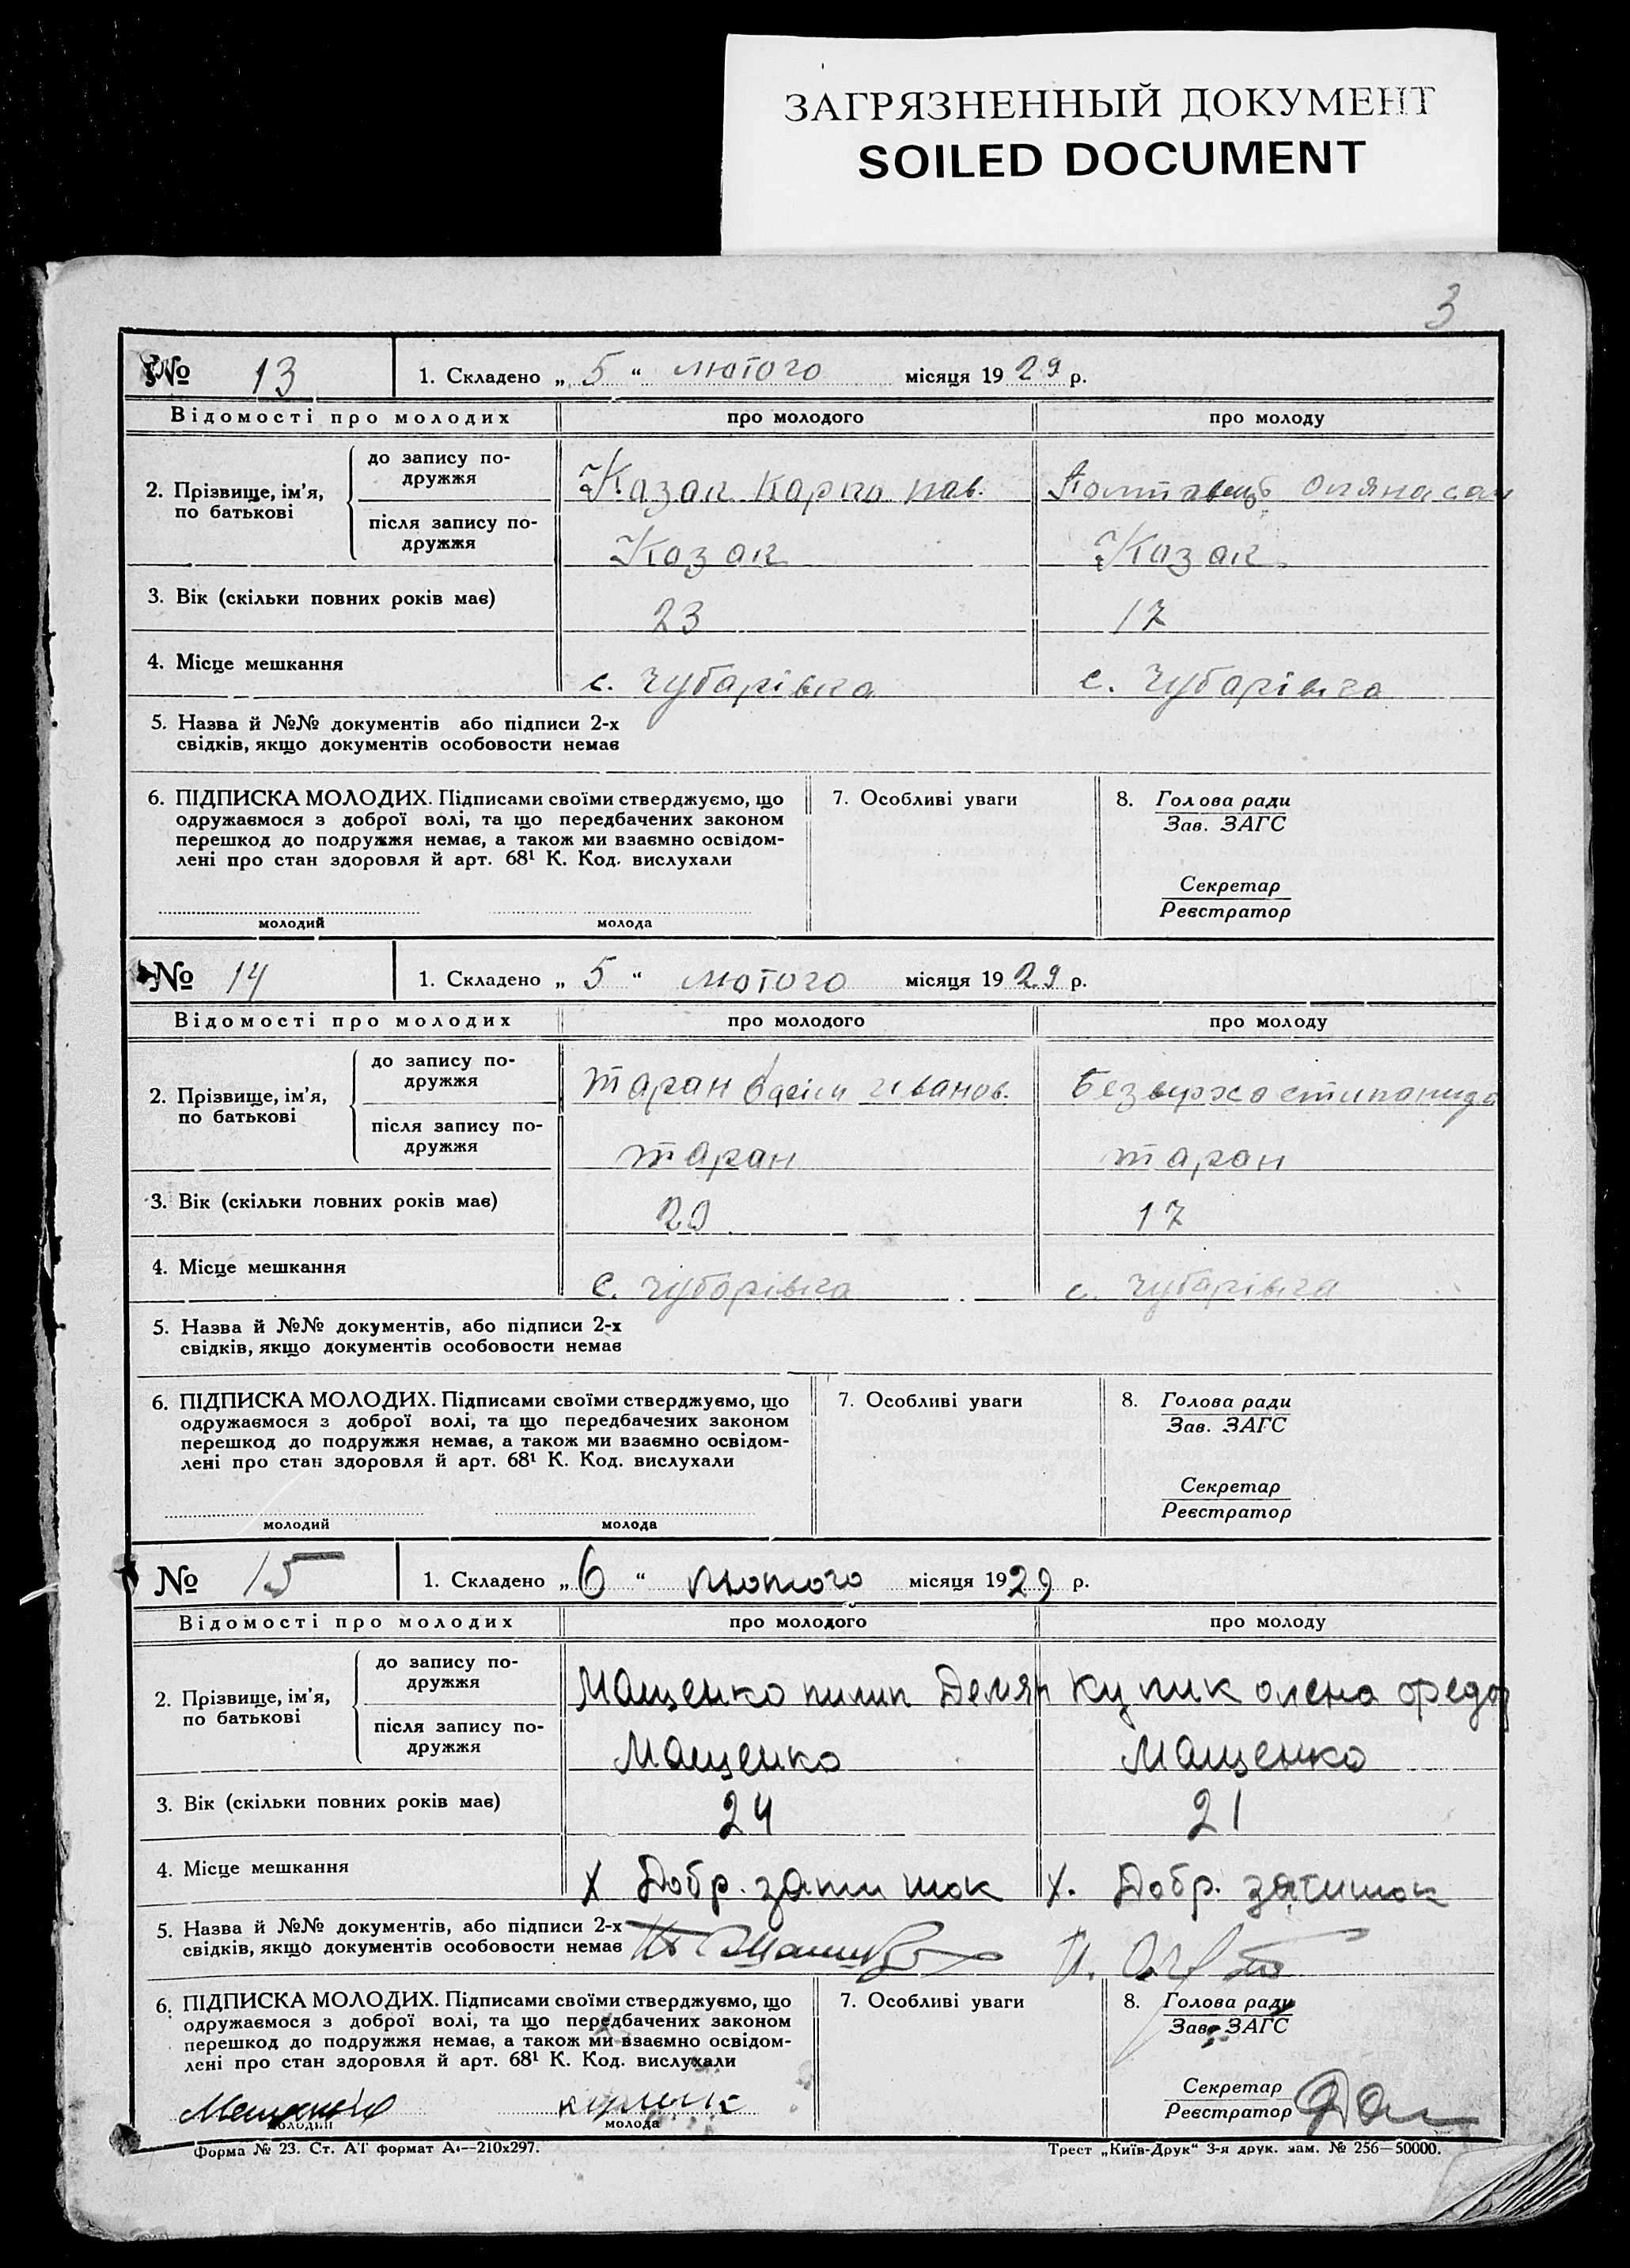 ЗАГРЯЗНЕННЫЙ ДОКУМЕНТ
SOILED DOCUMENT
3
№ 13 1. Складено „ 5 “ лютого місяця 1929 р.
Відомості про молодих про молодого про молоду
2. Прізвище, ім’я, по батькові
до запису по-
дружжя
Казак Карпо пав.
після запису по-
дружжя
Козак Козак
3. Вік (скільки повних років має) 23 17
4. Місце мешкання с. Чубарівка с. Чубарівка
5. Назва й №№ документів або підписи 2-х
свідків, якщо документів особовости немає
6. ПІДПИСКА МОЛОДИХ. Підписами своїми стверджуємо, що
одружаємося з доброї волі, та що передбачених законом
перешкод до подружжя немає, а також ми взаємно освідом-
лені про стан здоровля й арт. 68¹ К. Код. вислухали
молодий молода
7. Особливі уваги
8. Голова ради
Зав. ЗАГС
Секретар
Реєстратор
№ 14 1. Складено „ 5 “ лютого місяця 1929 р.
Відомості про молодих про молодого про молоду
2. Прізвище, ім’я, по батькові
до запису по-
дружжя
Таран Іванов.
після запису по-
дружжя
Таран Таран
3. Вік (скільки повних років має) 17
4. Місце мешкання с. Чубарівка с. Чубарівка
5. Назва й №№ документів, або підписи 2-х
свідків, якщо документів особовости немає
6. ПІДПИСКА МОЛОДИХ. Підписами своїми стверджуємо, що
одружаємося з доброї волі, та що передбачених законом
перешкод до подружжя немає, а також ми взаємно освідом-
лені про стан здоровля й арт. 68¹ К. Код. вислухали
молодий молода
7. Особливі уваги
8. Голова ради
Зав. ЗАГС
Секретар
Реєстратор
№ 15 1. Складено „ 6 “ лютого місяця 1929 р.
Відомості про молодих про молодого про молоду
2. Прізвище, ім’я, по батькові
до запису по-
дружжя
Мащенко пилип Демян Кулик олена федор
після запису по-
дружжя
Мащенко Мащенко
3. Вік (скільки повних років має) 24 21
4. Місце мешкання Х Добр. затишок Х. Добр. затишок
5. Назва й №№ документів, або підписи 2-х
свідків, якщо документів особовости немає
6. ПІДПИСКА МОЛОДИХ. Підписами своїми стверджуємо, що
одружаємося з доброї волі, та що передбачених законом
перешкод до подружжя немає, а також ми взаємно освідом-
лені про стан здоровля й арт. 68¹ К. Код. вислухали
кулик
молодий молода
7. Особливі уваги
8. Голова ради
Зав. ЗАГС
Секретар
Реєстратор
Форма № 23. Ст. АТ формат А₄—210х297. Трест „Київ-Друк“ 3-я друк. зам. № 256—50000.